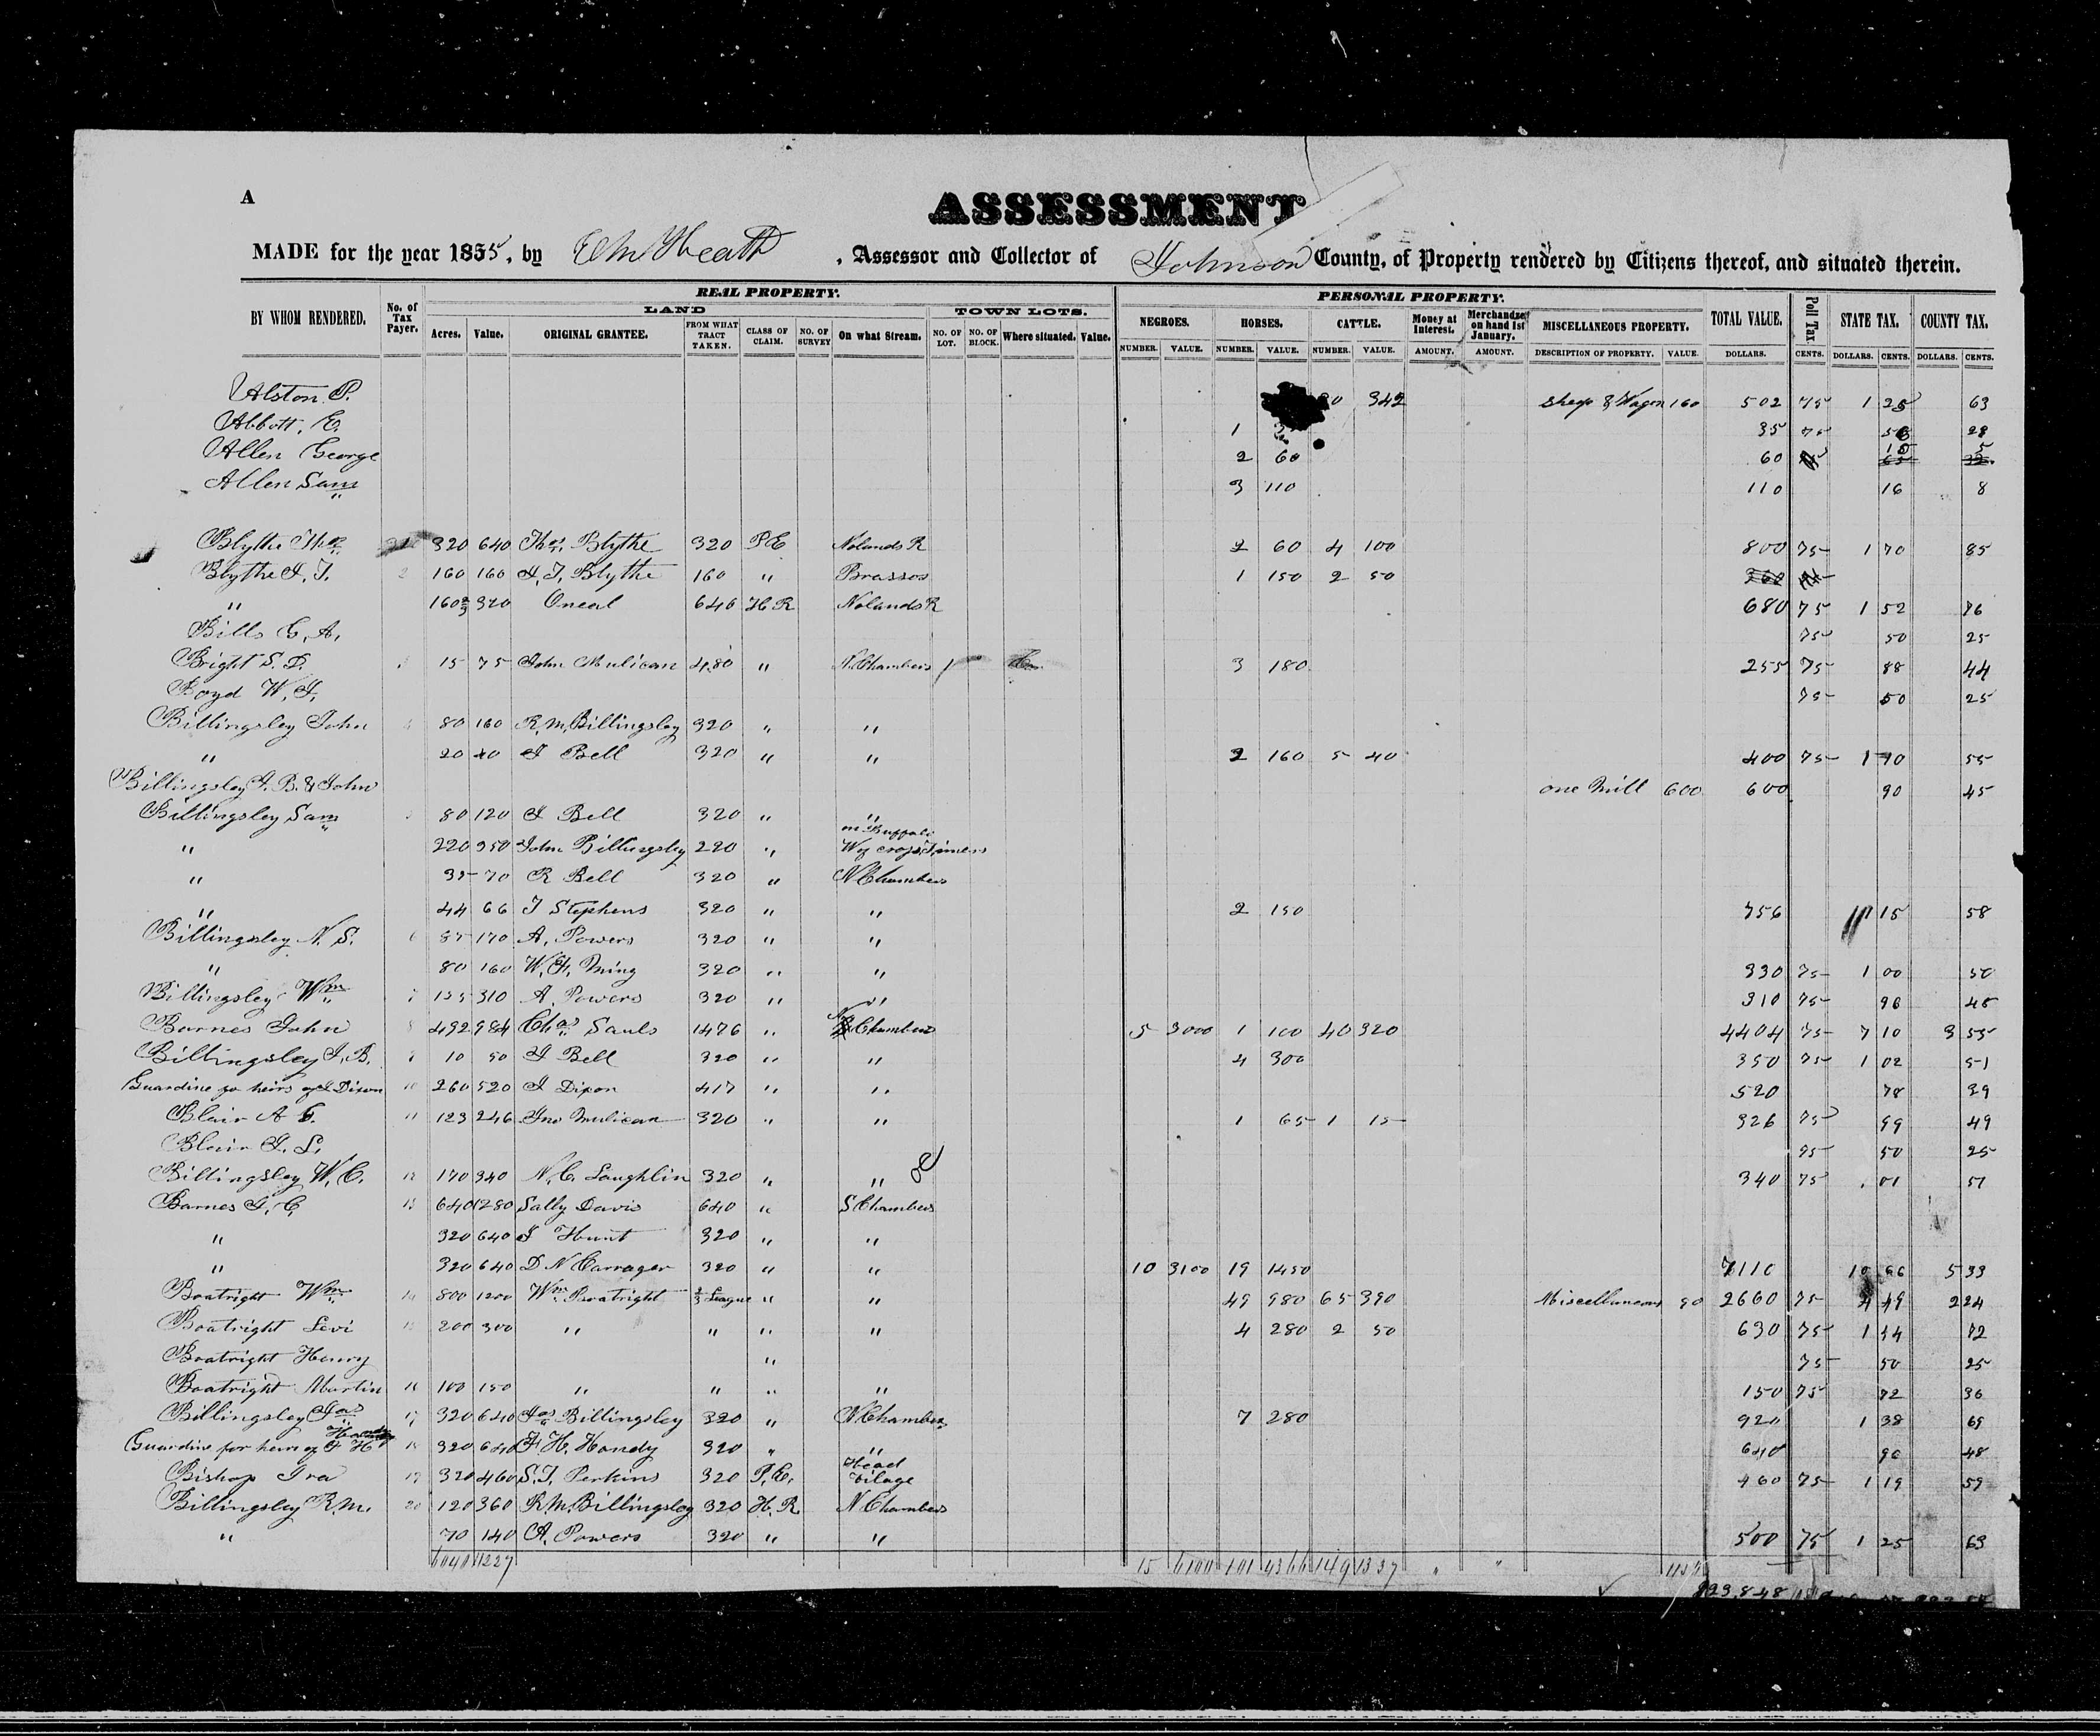 A
ASSESSMENT
MADE for the year 1855, by Heath, Assessor and Collector of Johnson County, of Property rendered by Citizens thereof, and situated therein.
REAL PROPERTY. PERSONAL PROPERTY.
LAND TOWN LOTS.
BY WHOM RENDERED. No. of Tax Payer. Acres. Value. ORIGINAL GRANTEE. FROM WHAT TRACT TAKEN. CLASS OF CLAIM. NO. OF SURVEY On what Stream. NO. OF LOT. NO. OF BLOCK. Where situated. Value. NEGROES. HORSES. CATTLE. Money at Interest. Merchandze on hand 1st January. MISCELLANEOUS PROPERTY. TOTAL VALUE. Poll Tax STATE TAX. COUNTY TAX.
NUMBER. VALUE. NUMBER. VALUE. NUMBER. VALUE. AMOUNT. AMOUNT. DESCRIPTION OF PROPERTY. VALUE. DOLLARS. CENTS. DOLLARS. CENTS. DOLLARS. CENTS.
Alston P. 342 Sheep & Wagon 160 502 75 1 25 63
Abbott, E. 1 35 75 28
Allen George 2 60 60 5
Allen Sam 3 110 110 16 8
Blythe Thos 320 640 Thos. Blythe 320 P E Nolands R 2 60 4 100 800 75 1 70 85
Blythe J. T. 2 160 160 J. T. Blythe 160 " Brassos 1 150 2 50 360
" 160 2/3 320 Oneal 640 H R Nolands R 680 75 1 52 76
Bills C. A. 75 50 25
Bright S. D. 3 15 75 John Mulican 480 " N. Chambers 3 180 255 75 88 44
Boyd W. J. 75 50 25
Billingsley John 4 80 160 R. M. Billingsley 320 " "
" 20 40 J Bell 320 " " 2 160 5 40 400 75 1 10 55
Billingsley J. B. & John one Mill 600 600 90 45
Billingsley Sam 5 80 120 J Bell 320 " "
" 220 350 John Billingsley 220 " on Buffalo
W of cross Timers
" 35 70 R Bell 320 " N Chambers
" 44 66 J Stephens 320 " " 2 150 756 1 15 58
Billingsley N. S. 6 85 170 A. Powers 320 " "
" 80 160 W. F. Ming 320 " " 330 75 1 00 50
Billingsley Wm 7 155 310 A. Powers 320 " " 310 75 96 48
Barnes John 8 492 984 Chas Sauls 1476 " N Chambers 5 3000 1 100 40 320 4404 75 7 10 3 55
Billingsley J. B. 9 10 50 J Bell 320 " " 4 300 350 75 1 02 51
Guardine for heirs of J Dixon 10 260 520 J Dixon 417 " " 520 78 39
Blair A G. 11 123 246 Jno Mulican 320 " " 1 65 1 15 326 75 99 49
Blair J. L. 75 50 25
Billingsley W. C. 12 170 340 N. C. Laughlin 320 " " 340 75 . 01 51
Barnes J. C. 13 640 1280 Sally Davis 640 " S Chambers
" 320 640 J Hunt 320 " "
" 320 640 D N Carrager 320 " " 10 3100 19 1450 7110 10 66 5 33
Boatright Wm 14 800 1200 Wm Boatright 1/3 League " " 49 980 65 390 Miscellaneous 90 2660 75 4 49 2 24
Boatright Levi 15 200 300 " " " " 4 280 2 50 630 75 1 44 72
Boatright Henry " 75 50 25
Boatright Martin 16 100 150 " " " " 150 75 72 36
Billingsley Jas 17 320 640 Jas Billingsley 320 " N Chambers 7 280 920 1 38 69
Guardine for heirs of J H Handy 18 320 640 J H. Handy 320 " " 640 96 48
Bishop Ira 19 320 460 S. T. Perkins 320 P. E. Head Vilage 460 75 1 19 59
Billingsley R. M. 20 120 360 R. M. Billingsley 320 H. R N Chambers
" 70 140 A. Powers 320 " " 500 75 1 25 63
6040 11227 15 6100 101 4366 149 1337 " "
$23,848